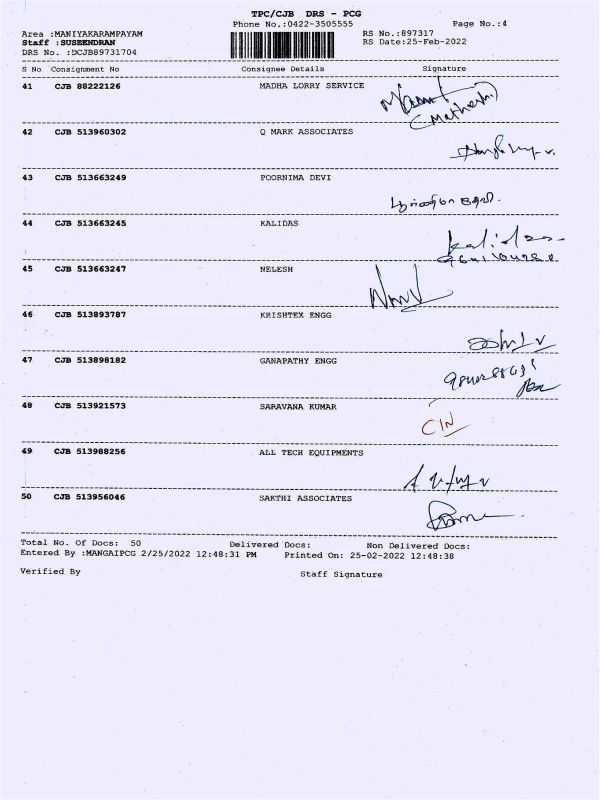 TPC/CJB DRS - PCG
Phone No.:0422-3505555 Page No.:4
Area :MANIYAKARAMPAYAM RS No.:897317
Staff :SUSEENDRAN RS Date:25-Feb-2022
DRS No. :DCJB89731704
S No Consignment No Consignee Details Signature
41 CJB 88222126 MADHA LORRY SERVICE
42 CJB 513960302 Q MARK ASSOCIATES
43 CJB 513663249 POORNIMA DEVI
44 CJB 513663245 KALIDAS
45 CJB 513663247 NELESH
46 CJB 513893787 KRISHTEX ENGG
47 CJB 513898182 GANAPATHY ENGG
48 CJB 513921573 SARAVANA KUMAR
CIN
49 CJB 513988256 ALL TECH EQUIPMENTS
50 CJB 513956046 SAKTHI ASSOCIATES
Total No. Of Docs: 50 Delivered Docs: Non Delivered Docs:
Entered By :MANGAIPCG 2/25/2022 12:48:31 PM Printed On: 25-02-2022 12:48:38
Verified By Staff Signature